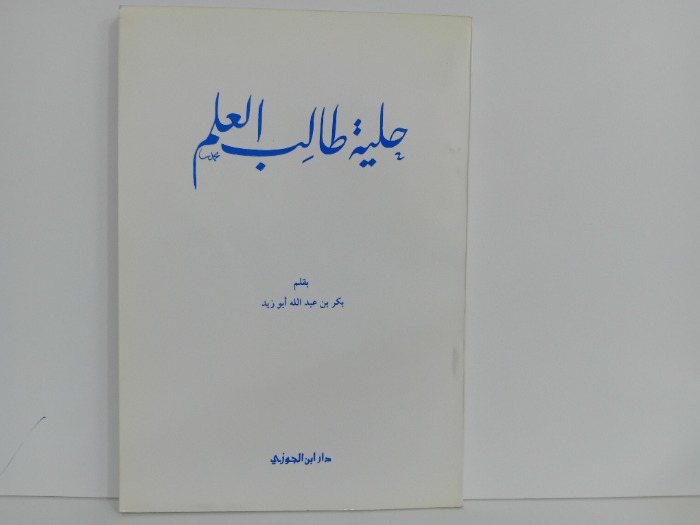 حلية طالب العلم
بقلم
بكر بن عبد الله أبو زيد
دار ابن الجوزي